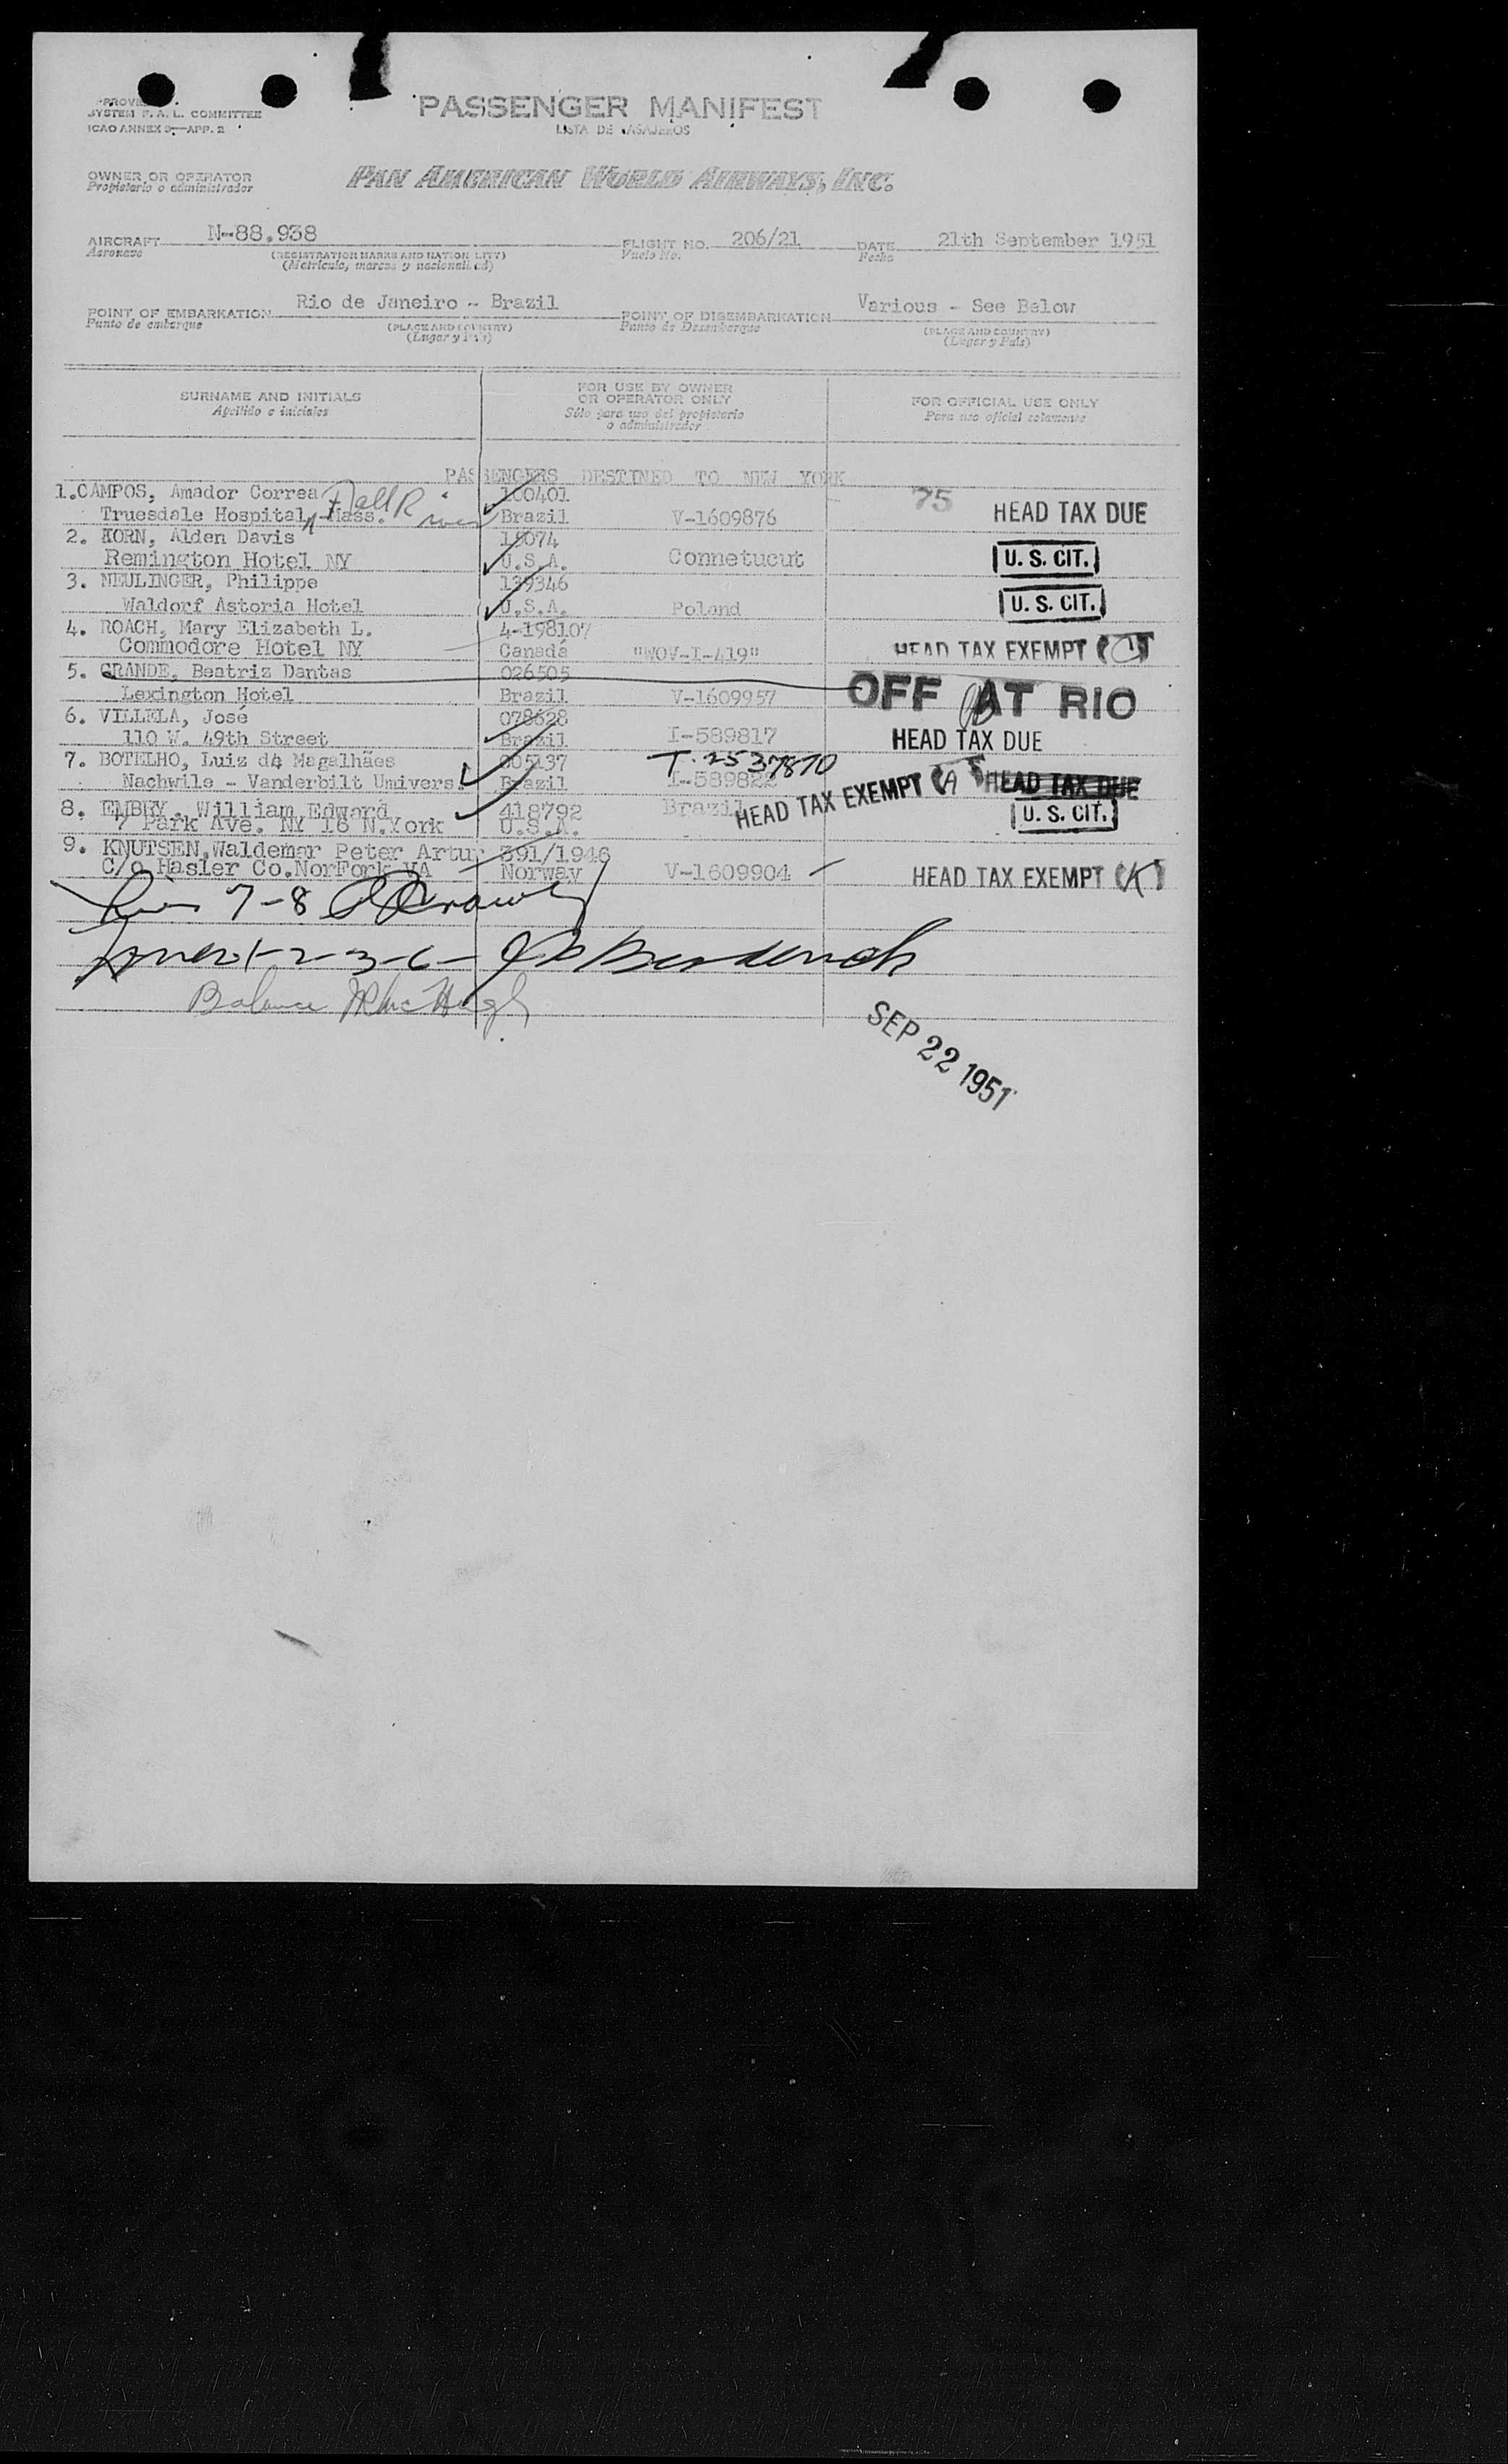 SYSTEM F. A. L. COMMITTEE
ICAO ANNEX 9—APP. 2
PASSENGER MANIFEST
LISTA DE PASAJEROS
OWNER OR OPERATOR
Propietario o administrador
PAN AMERICAN WORLD AIRWAYS, INC.
AIRCRAFT N-88.938 FLIGHT NO. 206/21 DATE 21th September 1951
Aeronave (REGISTRATION MARKS AND NATIONALITY) Vuelo No. Fecha
(Matricula, marcas y nacionalidad)
POINT OF EMBARKATION Rio de Janeiro - Brazil POINT OF DISEMBARKATION Various - See Below
Punto de embarque (PLACE AND COUNTRY) Punto de Desembarque (PLACE AND COUNTRY)
(Lugar y País) (Lugar y País)
SURNAME AND INITIALS
Apellido e iniciales
FOR USE BY OWNER
OR OPERATOR ONLY
Sólo para uso del propietario
o administrador
FOR OFFICIAL USE ONLY
Para uso oficial solamente
PASSENGERS DESTINED TO NEW YORK
1.CAMPOS, Amador Correa Fall River 100401 75 HEAD TAX DUE
Truesdale Hospital, Mass. Brazil V-1609876
2. KORN, Alden Davis 18074
Remington Hotel NY U.S.A. Connetucut U. S. CIT.
3. NEULINGER, Philippe 139346
Waldorf Astoria Hotel U.S.A. Poland U. S. CIT.
4. ROACH, Mary Elizabeth L. 4-198107
Commodore Hotel NY Canadá "WOV-I-419" HEAD TAX EXEMPT
5. GRANDE, Beatriz Dantas 026505
Lexington Hotel Brazil V-1609957 OFF AT RIO
6. VILLELA, José 078628
110 W. 49th Street Brazil I-589817 HEAD TAX DUE
7. BOTELHO, Luiz de Magalhães 005137 T-2537870
Nachwile - Vanderbilt Univers. Brazil I-589822 HEAD TAX EXEMPT HEAD TAX DUE
8. EMBRY, William Edward 418792 Brazil
7 Park Ave. NY 16 N.York U.S.A. U. S. CIT.
9. KNUTSEN,Waldemar Peter Artur 391/1946
C/o Hasler Co.Norfork VA Norway V-1609904 HEAD TAX EXEMPT (K)
7-8
1-2-3-6-
Balance
SEP 22 1951